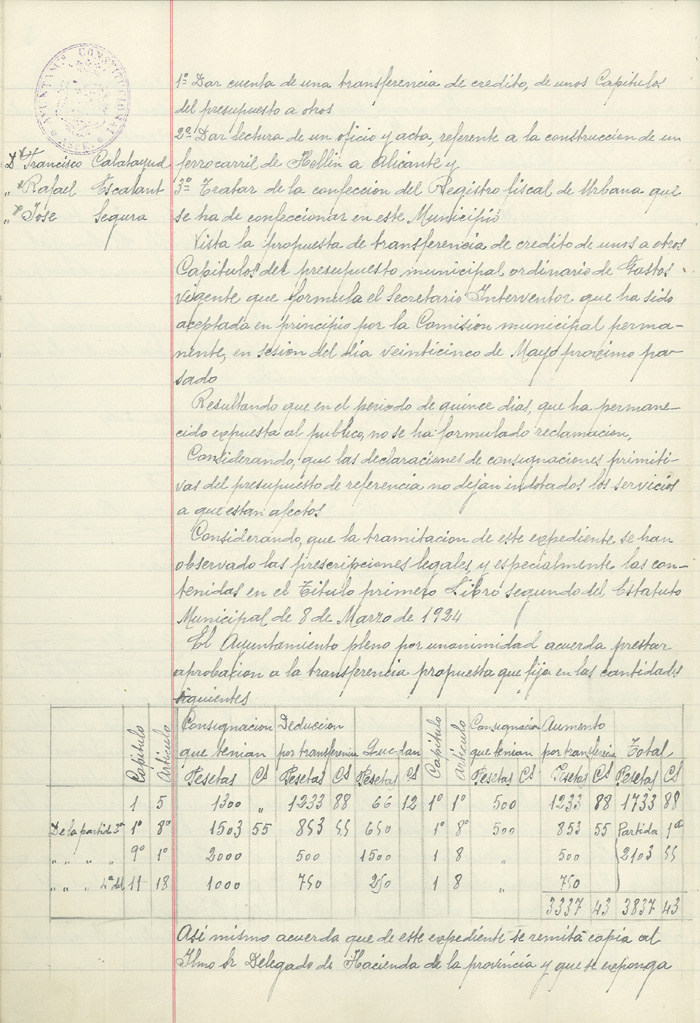 AYUNTAMº CONSTITUCIONAL
1º Dar cuenta de una transferencia de credito, de unos Capitulos
del presupuesto a otros
2º Dar lectura de un oficio y acta, referente a la construccion de un
Dn Francisco Calatayud
ferrocarril de Hellin a Alicante y
„ Rafael Escalant
3º Tratar de la confeccion del Registro fiscal de Urbana que
„ Jose Segura
se ha de confeccionar en este Municipio
Vista la propuesta de transferencia de credito de unos a otros
Capitulos del presupuesto municipal ordinario de Gastos
vigente que formula el Secretario Interventor que ha sido
aceptada en principio por la Comision municipal perma-
nente, en sesion del dia veinticinco de Mayo proximo pa-
sado
Resultando que en el periodo de quince dias, que ha permane-
cido expuesta al publico, no se ha formulado reclamacion,
Considerando, que las declaraciones de consignaciones primiti-
vas del presupuesto de referencia no dejan indotados los servicios
a que estan afectos
Considerando, que la tramitacion de este expediente se han
observado las prescripciones legales y especialmente las con-
tenidas en el Titulo primero Libro segundo del Estatuto
Municipal de 8 de Marzo de 1924
El Ayuntamiento pleno por unanimidad acuerda prestar
aprobacion a la transferencia propuesta que fija en las cantidades
siguientes
Capitulo Articulo Consignacion que tenian Deduccion por transferencia Quedan Capitulo Articulo Consignacion que tenian Aumento por transferencia Total
Pesetas Cs Pesetas Cs Pesetas Cs Pesetas Cs Pesetas Cs Pesetas Cs
1 5 1300 „ 1233 88 66 12 1º 1º 500 1233 88 1733 88
De la partida 3ª 1º 8º 1503 55 853 55 650 1 8º 500 853 55 Partida 1ª
„ „ „ 9º 1º 2000 500 1500 1 8 „ 500 2103 55
„ „ 4ª del 11 18 1000 750 250 1 8 „ 750
3337 43 3837 43
Asi mismo acuerda que de este expediente se remita copia al
Ilmo Sr Delegado de Hacienda de la provincia y que se exponga